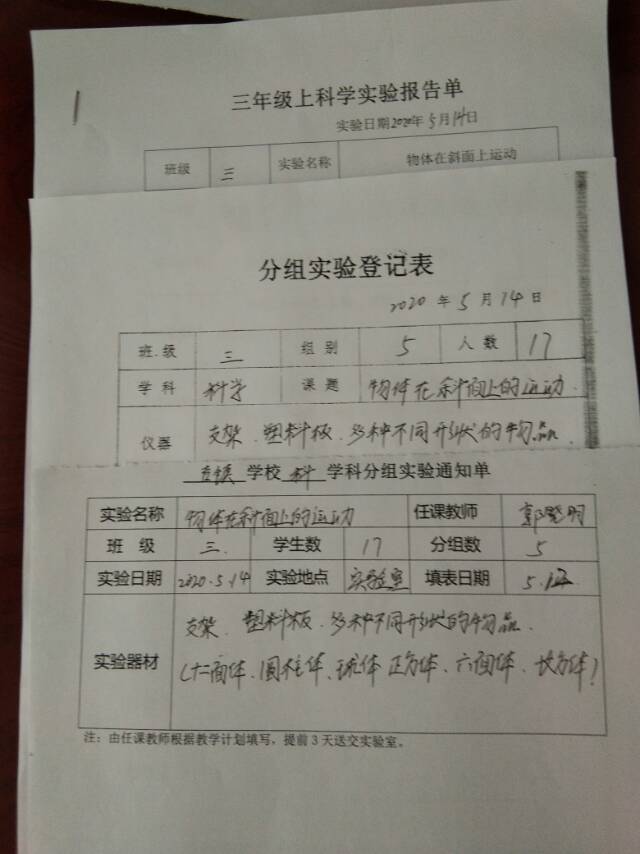 三年级上科学实验报告单
实验日期2020年5月14日
班级 三 实验名称 物体在斜面上运动
分组实验登记表
2020年5月14日
班.级 三 组别 5 人数 17
学科 科学 课题 物体在斜面上的运动.
仪器 支架.塑料板.多种不同形状的物品.
学校 科 学科分组实验通知单
实验名称 物体在斜面上的运动 任课教师 郭
班级 三. 学生数 17 分组数 5
实验日期 2020.5.14 实验地点 实验室 填表日期 5.12
支架.塑料板.多种不同形状的物品.
实验器材 (十二面体、圆柱体、球体 正方体、六面体、长方体)
注：由任课教师根据教学计划填写，提前3天送交实验室。